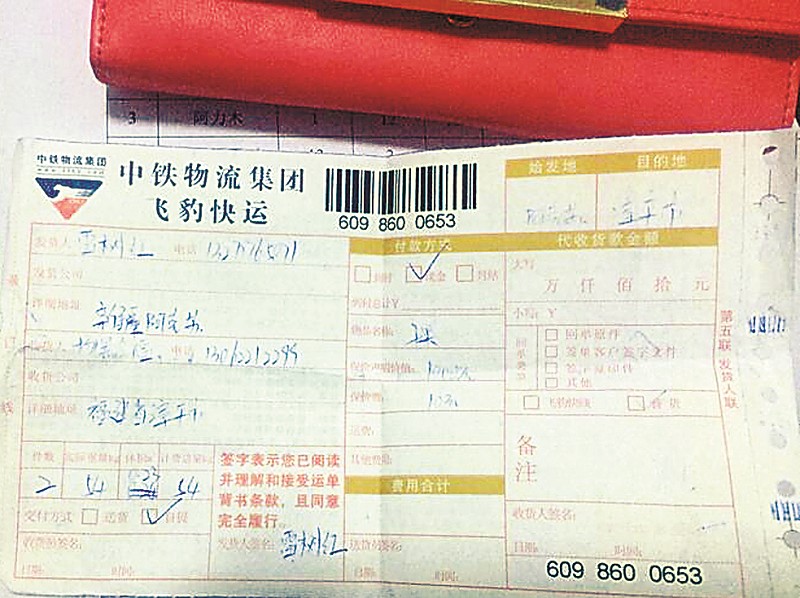 3 阿力木 1 12
中铁物流集团
中铁物流集团
飞豹快运
609 860 0653
始发地 目的地
发货人 雪树红 电话
付款方式
代收货款金额
到付 现金 月结
大写
万 仟 佰 拾 元
发货公司
到付总计￥
小写：￥
详细地址 新疆阿克苏
物品名称：
回单类型
回单原件
签单客户签字文件
签字复印件
其他
收货人 电话 13062212299
保价声明价值：
收货公司
保价费：
详细地址 福建省漳平市
运费：
其他费用
备注
件数 实际重量KG 体积M³ 计费重量KG
2 54 54
签字表示您已阅读
并理解和接受运单
背书条款，且同意
完全履行。
费用合计
交付方式 送货 自提
收货人签名：
收货人签名：
发货人签名：雪树红
送货员签名：
日期： 时间：
日期： 时间：
日期： 时间：
609 860 0653
第五联 发货人联
装订线